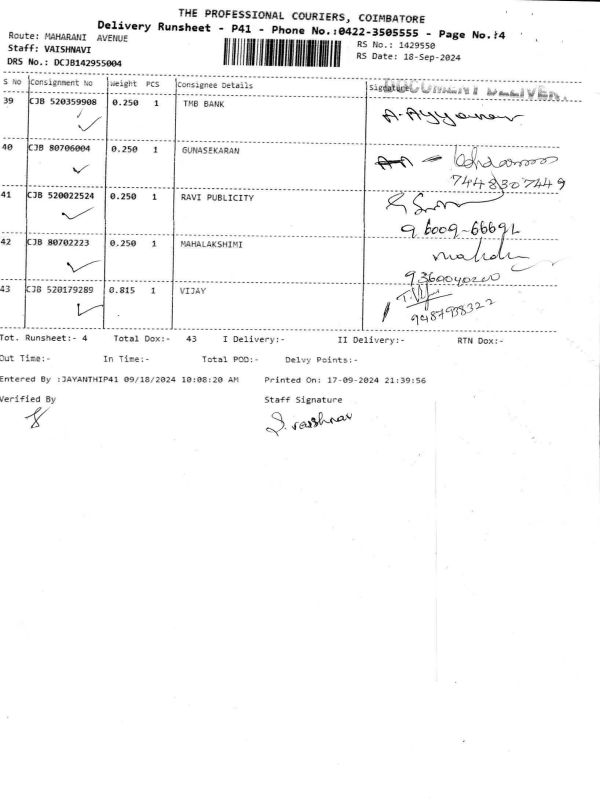 THE PROFESSIONAL COURIERS, COIMBATORE
Delivery Runsheet - P41 - Phone No.:0422-3505555 - Page No.:4
Route: MAHARANI AVENUE
RS No.: 1429550
Staff: VAISHNAVI
RS Date: 18-Sep-2024
DRS No.: DCJB142955004
S No Consignment No Weight PCS Consignee Details Signature
DOCUMENT DELIVER
39 CJB 520359908 0.250 1 TMB BANK A-Ayyanar
40 CJB 80706004 0.250 1 GUNASEKARAN
7448307449
41 CJB 520022524 0.250 1 RAVI PUBLICITY
42 CJB 80702223 0.250 1 MAHALAKSHIMI
9360040200
43 CJB 520179289 0.815 1 VIJAY
Tot. Runsheet:- 4 Total Dox:- 43 I Delivery:- II Delivery:- RTN Dox:-
Out Time:- In Time:- Total POD:- Delvy Points:-
Entered By :JAYANTHIP41 09/18/2024 10:08:20 AM Printed On: 17-09-2024 21:39:56
Verified By Staff Signature
S. vaishnav